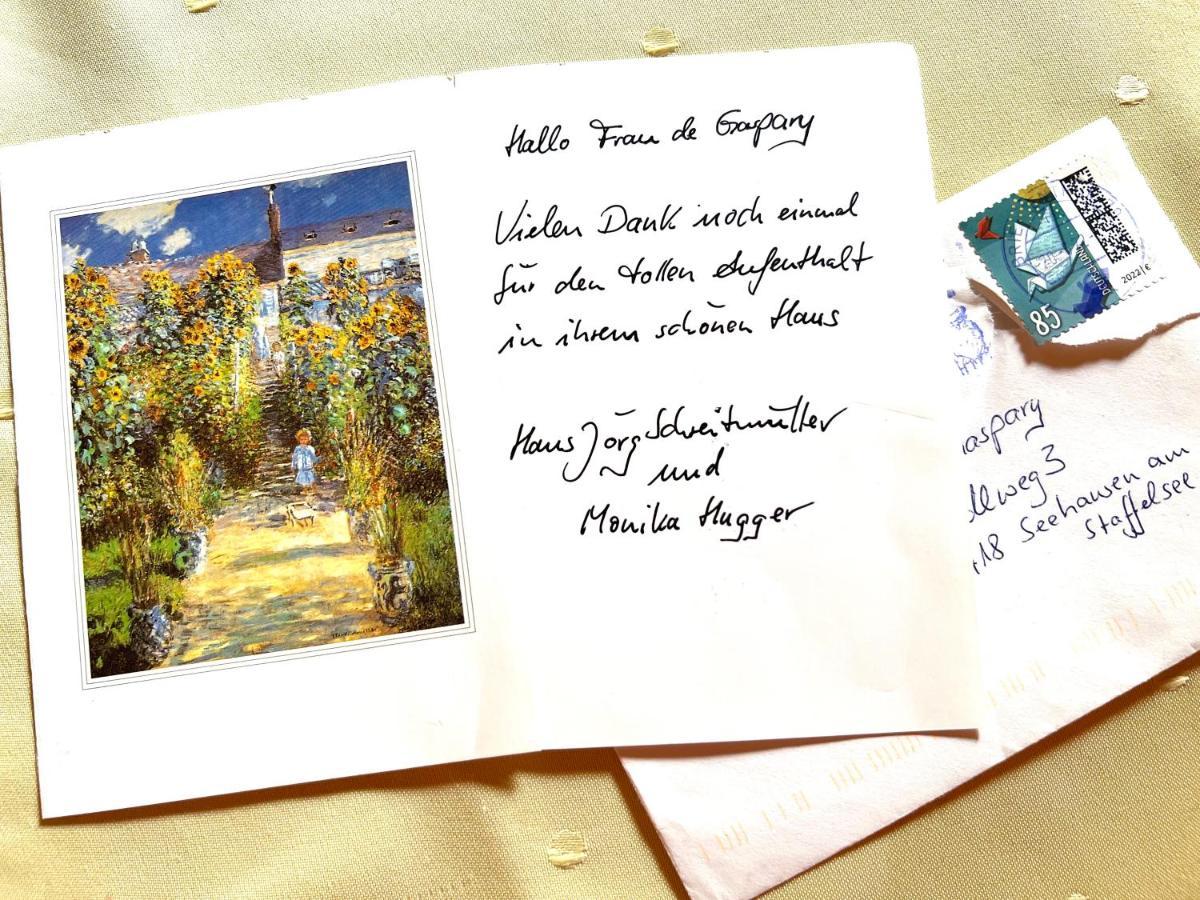 Hallo Frau de Gaspary
Vielen Dank noch einmal
für den tollen Aufenthalt
in ihrem schönen Haus
Hans Jörg Schreitmüller
und
Monika Hugger
DEUTSCHLAND
85
2022/€
aspary
llweg 3
418 Seehausen am
Staffelsee